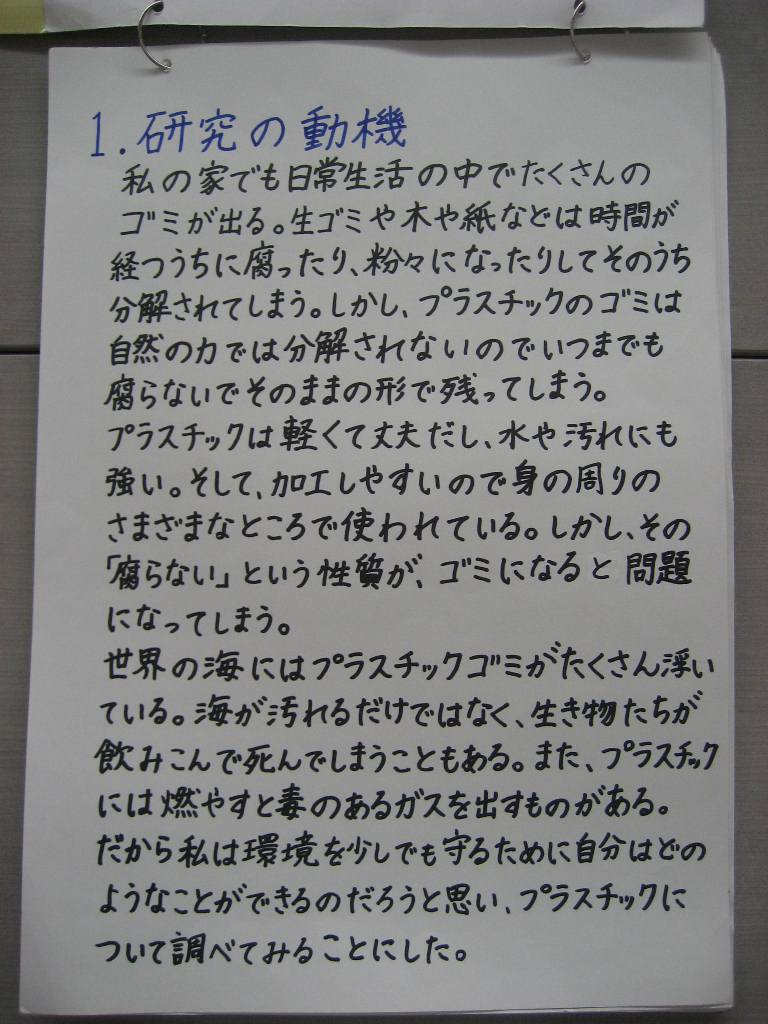 1.研究の動機
私の家でも日常生活の中でたくさんの
ゴミが出る。生ゴミや木や紙などは時間が
経つうちに腐ったり、粉々になったりしてそのうち
分解されてしまう。しかし、プラスチックのゴミは
自然の力では分解されないのでいつまでも
腐らないでそのままの形で残ってしまう。
プラスチックは軽くて丈夫だし、水や汚れにも
強い。そして、加工しやすいので身の周りの
さまざまなところで使われている。しかし、その
「腐らない」という性質が、ゴミになると問題
になってしまう。
世界の海にはプラスチックゴミがたくさん浮い
ている。海が汚れるだけではなく、生き物たちが
飲みこんで死んでしまうこともある。また、プラスチック
には燃やすと毒のあるガスを出すものがある。
だから私は環境を少しでも守るために自分はどの
ようなことができるのだろうと思い、プラスチックに
ついて調べてみることにした。